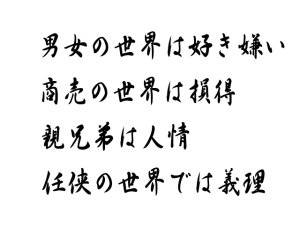 男女の世界は好き嫌い
商売の世界は損得
親兄弟は人情
任侠の世界では義理